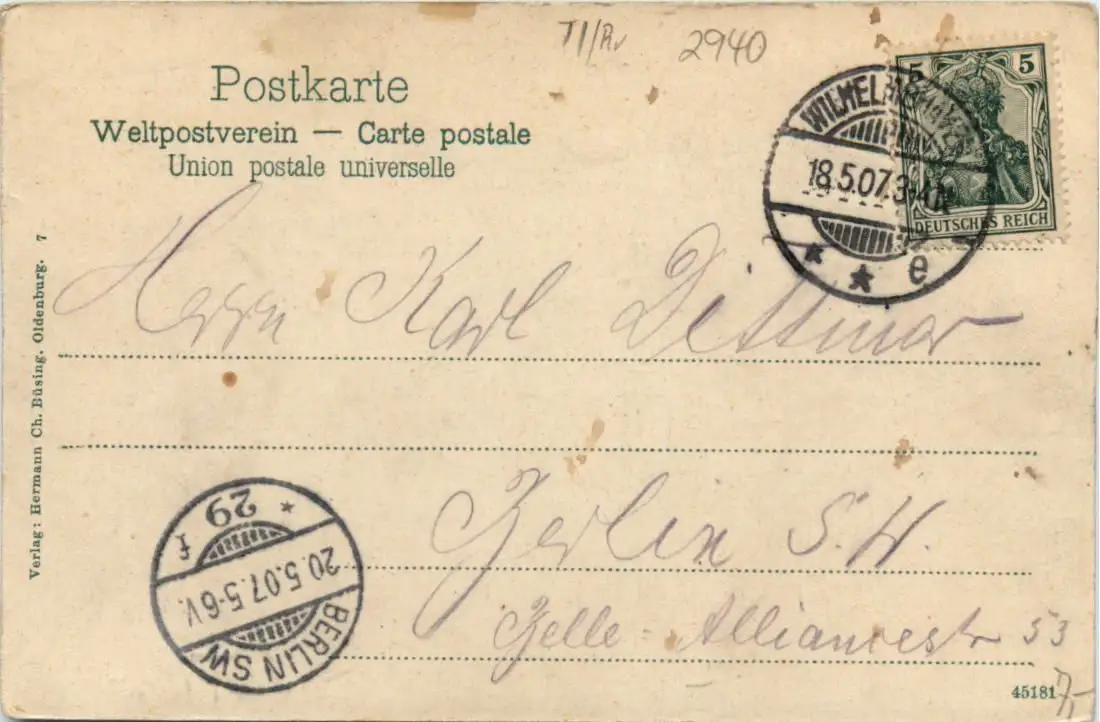 T1/Rv 2940
Postkarte
Weltpostverein — Carte postale
Union postale universelle
5 5
DEUTSCHES REICH
WILHELMSHAVEN
18.5.07.3-4N
* * e
Herrn Karl Dettmar
Berlin S.W.
Belle-Alliancestr 53
BERLIN SW
20.5.07.5-6V.
* 29 f
Verlag: Hermann Ch. Büsing. Oldenburg. 7
45181
7,-